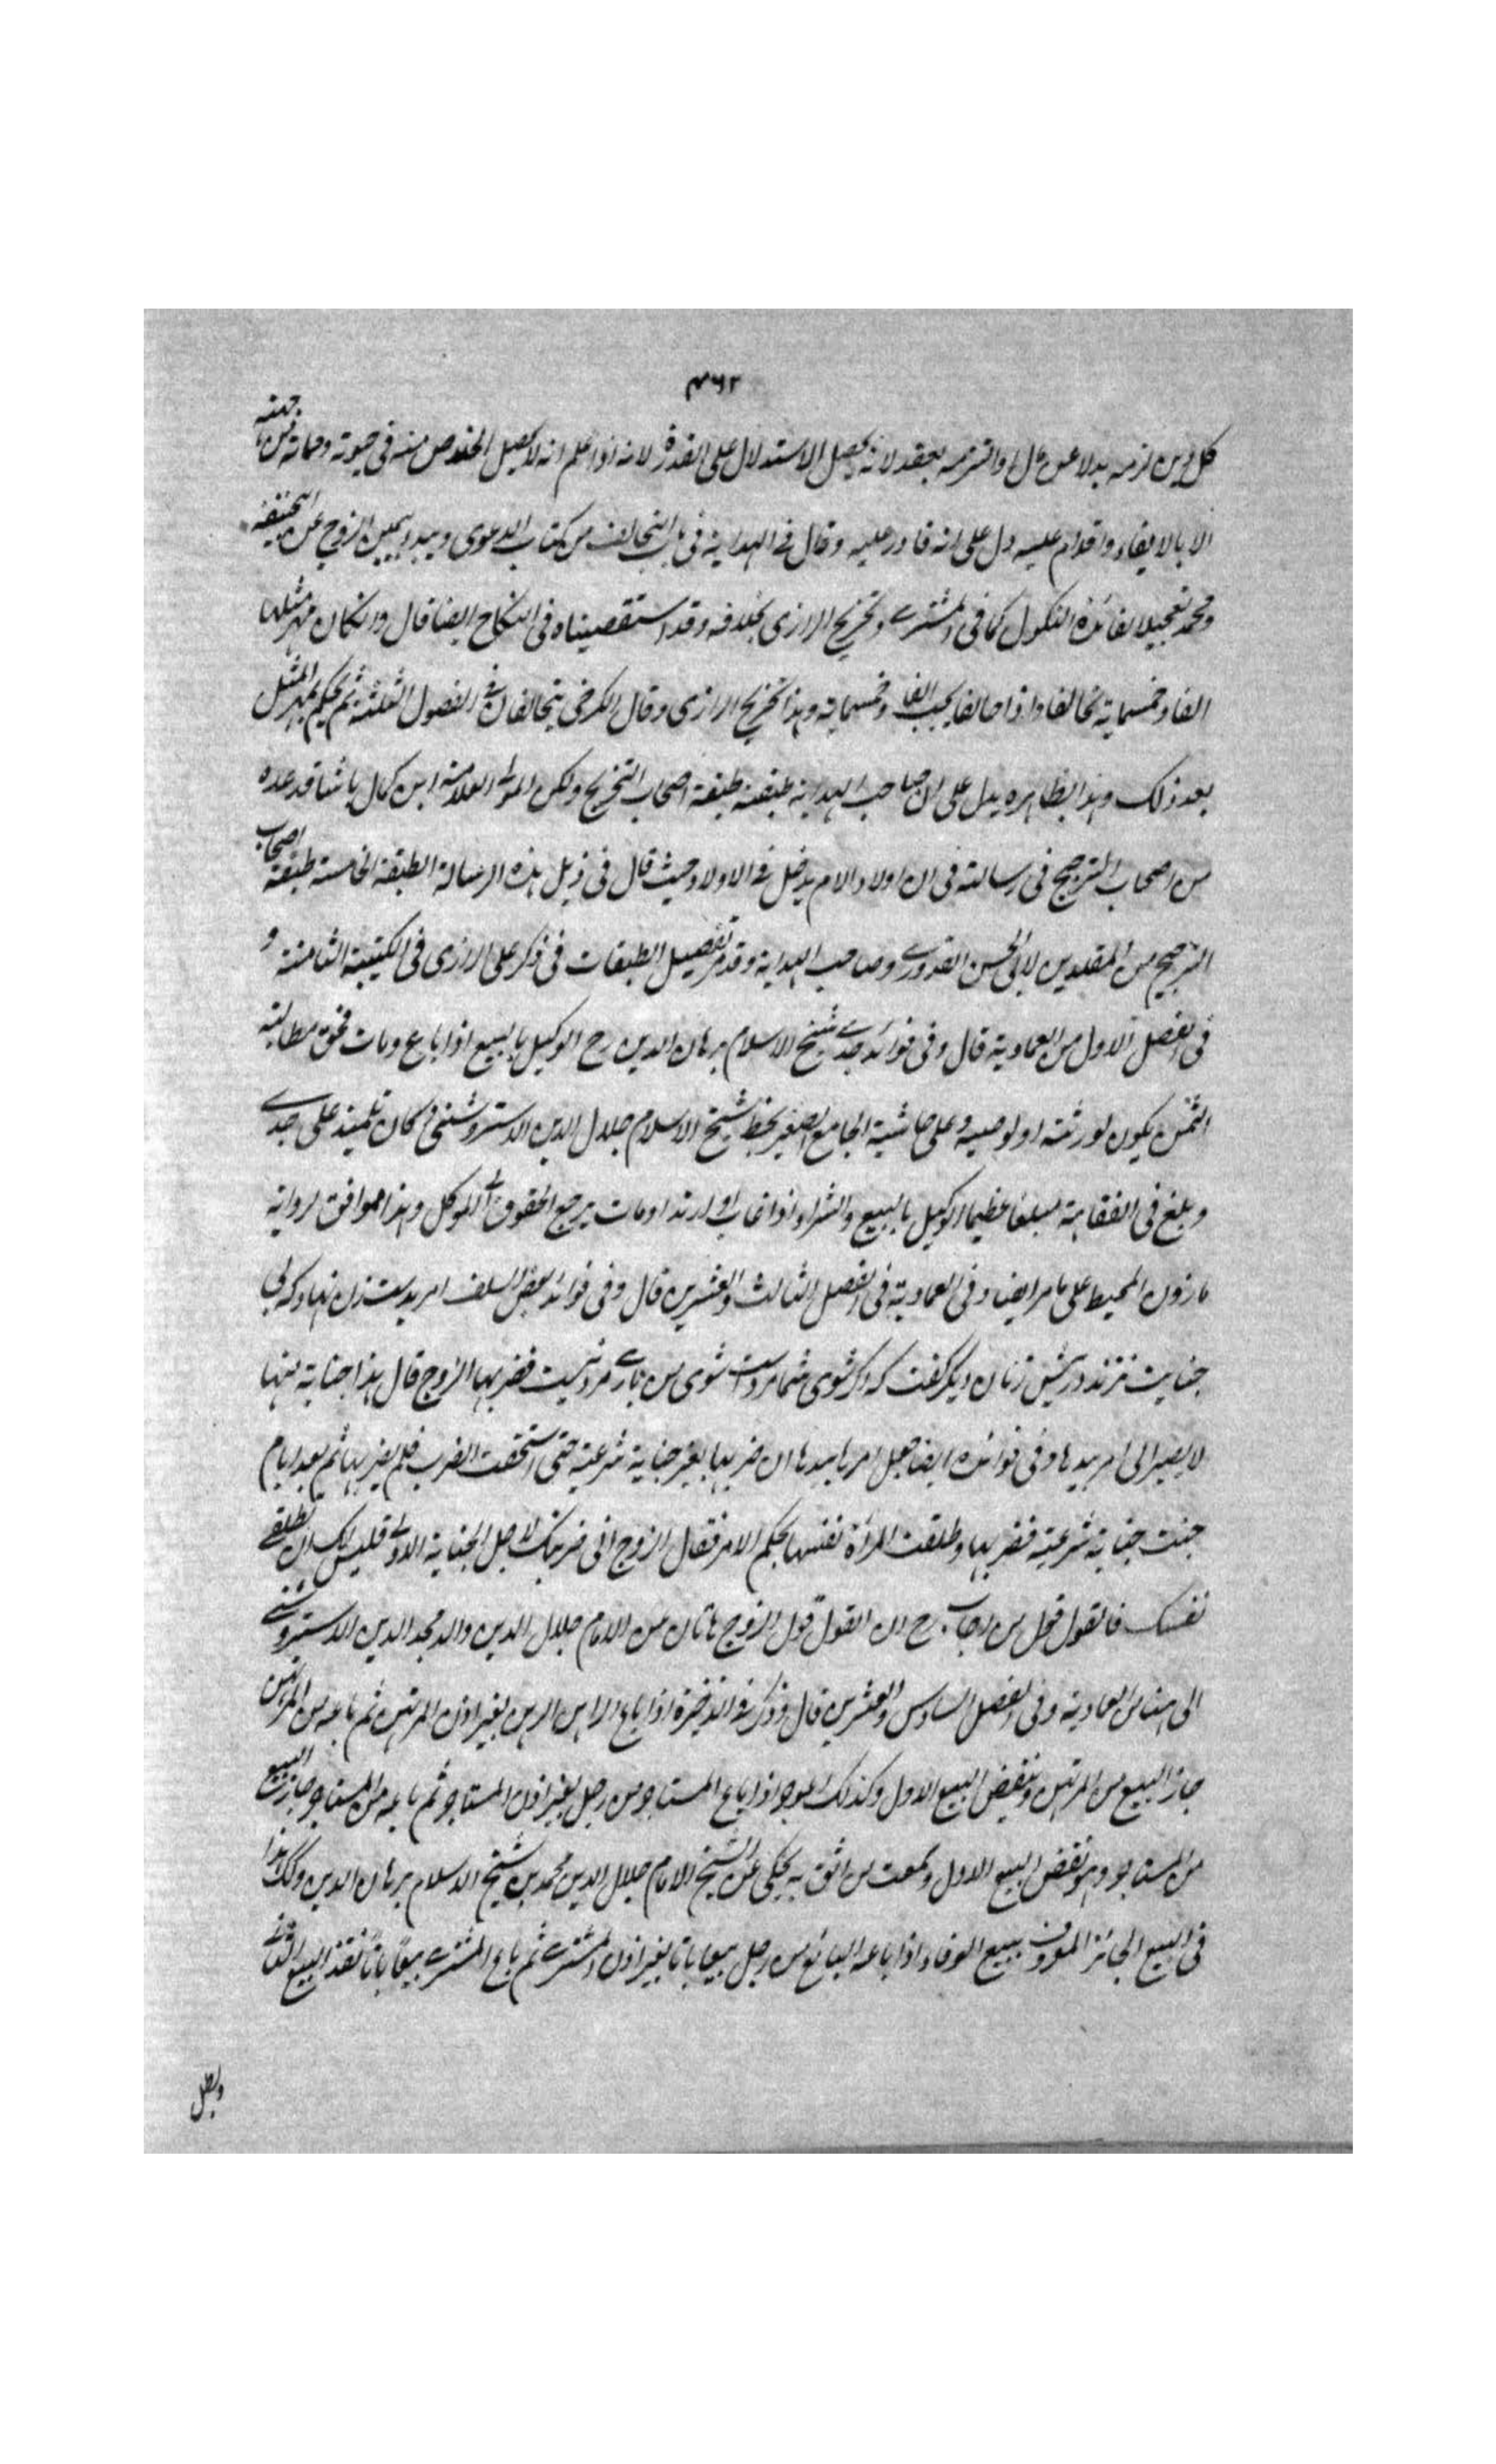 ٤٦٢
كل دين لزمه بدلا عن مال او التزمه بعقد لانه يحصل الاستدلال على القدرة لانه اذا علم انه لا يحصل الخلاص منه في حيوته ومماته من جهته
الا بالايفاء واقدام عليه دل على انه قادر عليه وقال في الهداية في باب التحالف من كتاب الدعوى ويبدا بيمين الزوج عن ابيحنيفة
ومحمد تعجيلا لفائدة النكول كما في المشترى وتخريج الرازى بخلافه وقد استقصيناه في النكاح ايضا قال وان كان مهر مثلها
الفا وخمسماية تحالفا واذا حالفا يجب الفا وخمسماية وهذا تخريج الرازى وقال الكرخى يتحالفان في الفصول الثلثة ثم يحكم بمهر المثل
بعد ذلك وهذا بظاهره يدل على ان صاحب الهداية طبقته طبقة اصحاب التخريج ولكن المولى العلامة ابن كمال باشا قد عده
من اصحاب الترجيح في رسالته في ان اولاد الام يدخل في الاولاد حيث قال في ذيل هذه الرسالة الطبقة الخامسة طبقة اصحاب
الترجيح من المقلدين لابى الحسن القدورى وصاحب الهداية وقد مر تفصيل الطبقات في ذكر على الرازى في الكتيبة الثامنة و
في الفصل الاول من العمادية قال وفى فوائد جدى شيخ الاسلام برهان الدين رح الوكيل بالبيع اذا باع ومات فحق مطالبة
الثمن يكون لورثته او لوصيه وعلى حاشية الجامع الصغير بخط شيخ الاسلام جلال الدين الاستروشنى وكان تلميذ على جدى
وبلغ في الفقاهة مبلغا عظيما الوكيل بالبيع والشراء اذا غاب او ارتد او مات يرجع الحقوق الى الموكل وهذا موافق لرواية
ماذون المحيط على ما مر ايضا وفى العمادية في الفصل الثالث والعشرين قال وفى فوائد بعض السلف امر بدست زن نهاد كه بى
جنايت نزند در پيش زنان ديگر گفت كه اگر شوى شما مرد است شوى من بارى مرد نيست فضربها الزوج قال هذا جناية منها
لا يصير الى امر بيدها وفى فوائده ايضا جعل امرها بيدها ان ضربها بغير جناية شرعية حتى استحقت الضرب فلم يضربها ثم بعد ايام
جنت جناية شرعية فضربها وطلقت المرأة نفسها بحكم الامر فقال الزوج انى ضربتك لاجل الجناية الاولى فليس لك ان تطلقى
نفسك فالقول قول من اجاب رح ان القول قول الزوج هاتان من الامام جلال الدين والد مجد الدين الاستروشنى
الى هنا من العمادية وفى الفصل السادس والعشرين قال وذكر في الذخيرة اذا باع الراهن الرهن بغير اذن المرتهن ثم باعه من المرتهن
جاز البيع من المرتهن وينقض البيع الاول وكذلك الموجر اذا باع المستاجر من رجل بغير اذن المستاجر ثم باعه من المستاجر جاز البيع
من المستاجر وهو نقض البيع الاول وسمعت من اثق به يحكى عن الشيخ الامام جلال الدين محمد بن شيخ الاسلام برهان الدين وكذا هذا
في البيع الجائز المعروف ببيع الوفاء اذا باعه البائع من رجل بيعا باتا بغير اذن المشترى ثم باع المشترى بيعا باتا نفذ البيع الثانى
وبطل